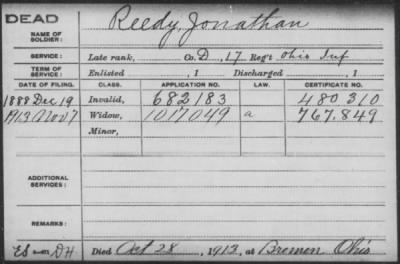 DEAD
NAME OF SOLDIER: Reedy, Jonathan
SERVICE: Late rank, Co. D, 17 Reg't Ohio Inf
TERM OF SERVICE: Enlisted , 1 Discharged , 1
DATE OF FILING. CLASS. APPLICATION NO. LAW. CERTIFICATE NO.
1888 Dec 19 Invalid, 682183 480310
1913 Nov 7 Widow, 1017049 a 767.849
Minor,
ADDITIONAL SERVICES:
REMARKS:
Died Oct 28, 1913, at Bremen Ohio